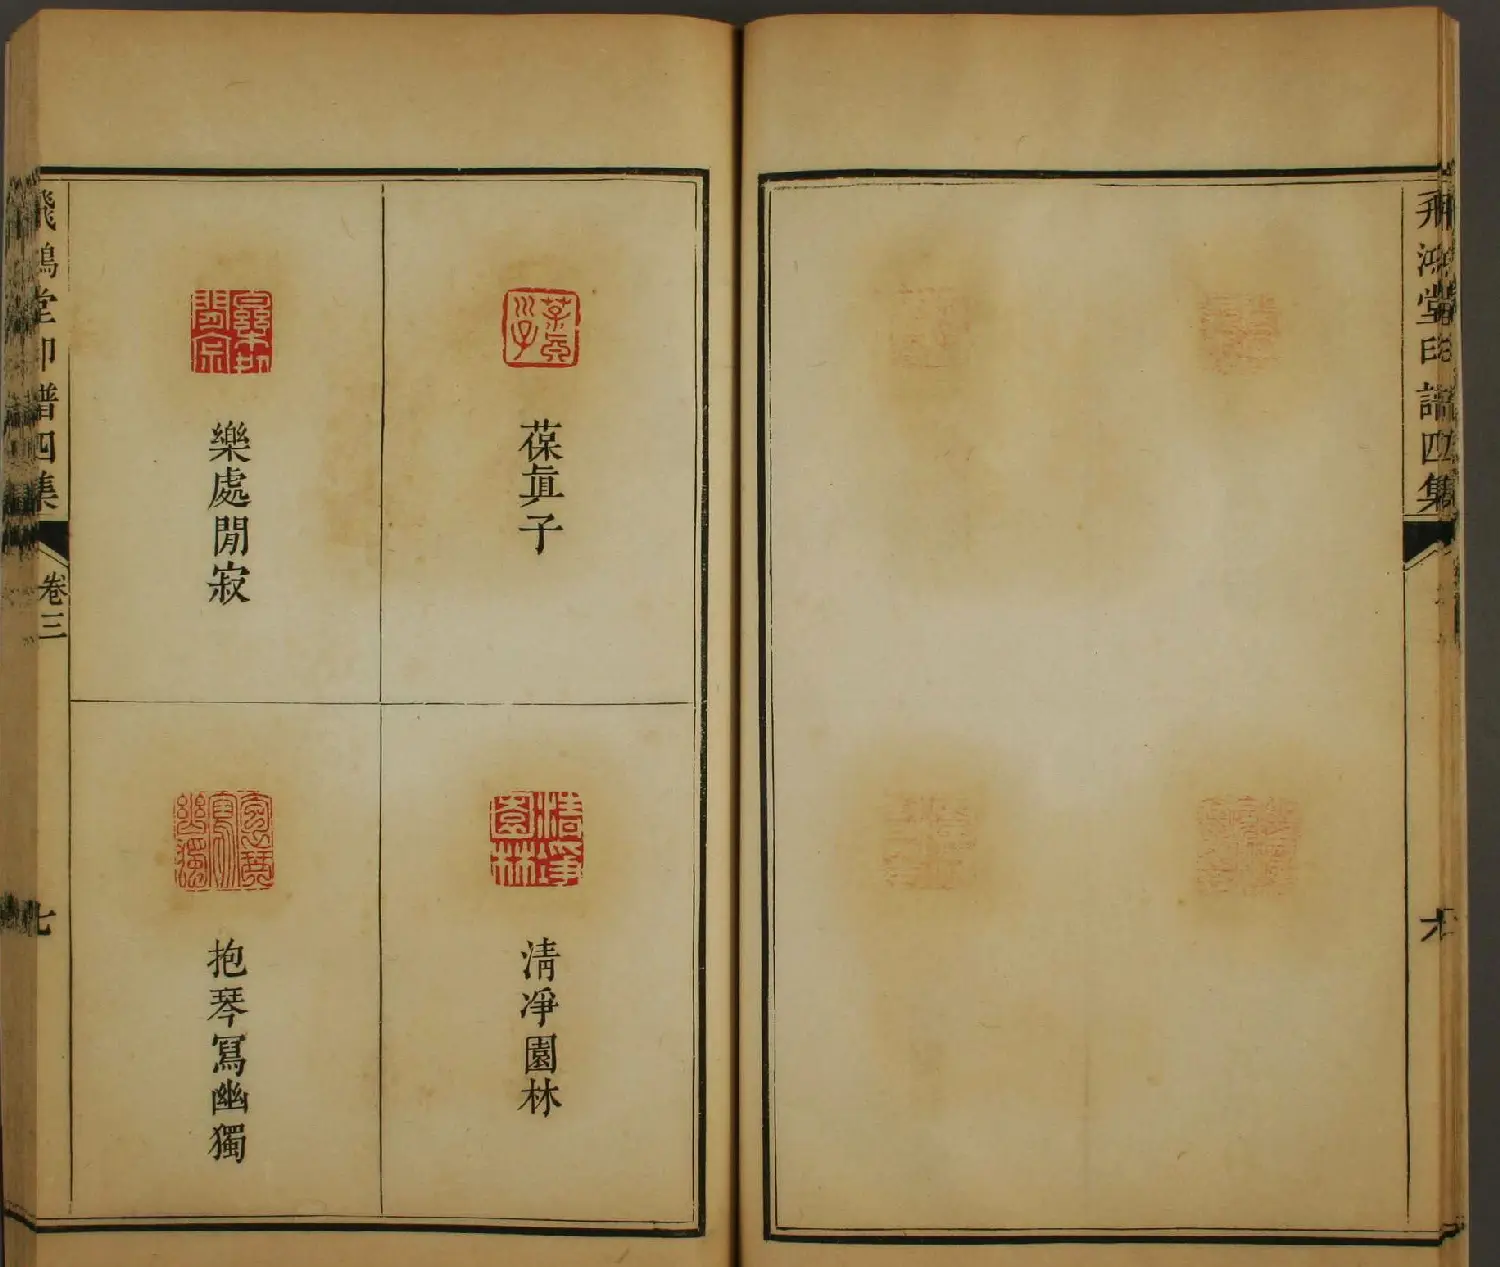 飛鴻堂印譜四集
葆眞子
清凈園林
樂處閒寂
抱琴寫幽獨
飛鴻堂印譜四集
卷三
七